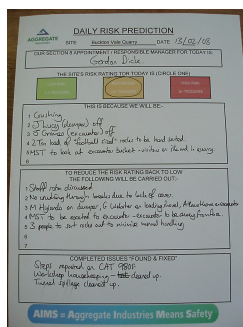 AGGREGATE
INDUSTRIES
DAILY RISK PREDICTION
SITE Buckton Vale Quarry DATE 13/02/08
OUR SECTION 8 APPOINTMENT / RESPONSIBLE MANAGER FOR TODAY IS:
Gordon Dick
THE SITE'S RISK RATING FOR TODAY IS (CIRCLE ONE)
THIS IS BECAUSE WE WILL BE:-
1 Crushing
2 J Lucy (dumper) off
3 G Graves (excavator) off
4 Two loads of "football sized" rocks to be hand sorted.
5 MST to look at excavator bucket - visitor on site and in quarry
6
TO REDUCE THE RISK RATING BACK TO LOW
THE FOLLOWING WILL BE CARRIED OUT:-
1 Staff rota discussed
2 No crushing through breaks due to lack of cover.
3 M Hylands on dumper, G Webster on loading shovel,
4 MST to be escorted to excavator - excavator to be away from face.
5 3 people to sort rocks out to minimise manual handling
6
7
COMPLETED ISSUES "FOUND & FIXED"
Steps repaired on CAT 980F
Workshop housekeeping - cleaned up.
Tunnel spillage cleaned up.
AIMS = Aggregate Industries Means Safety